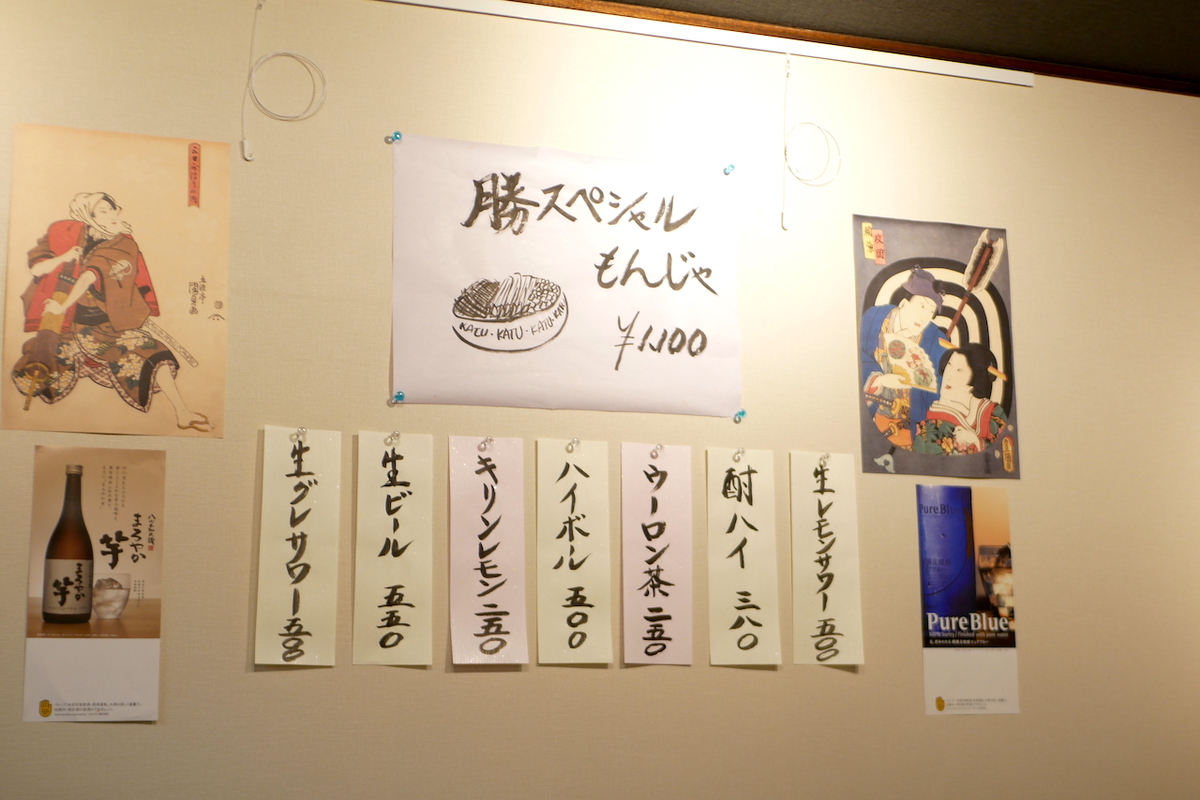 勝スペシャル
もんじゃ
¥1,100
KATU・KATU・KATU・KATU
生グレサワー 五〇〇
生ビール 五五〇
キリンレモン 二五〇
ハイボール 五〇〇
ウーロン茶 二五〇
酎ハイ 三八〇
生レモンサワー 五〇〇
まろやか
芋
芋
Pure Blue
PureBlue
100% barley / finished with pure water